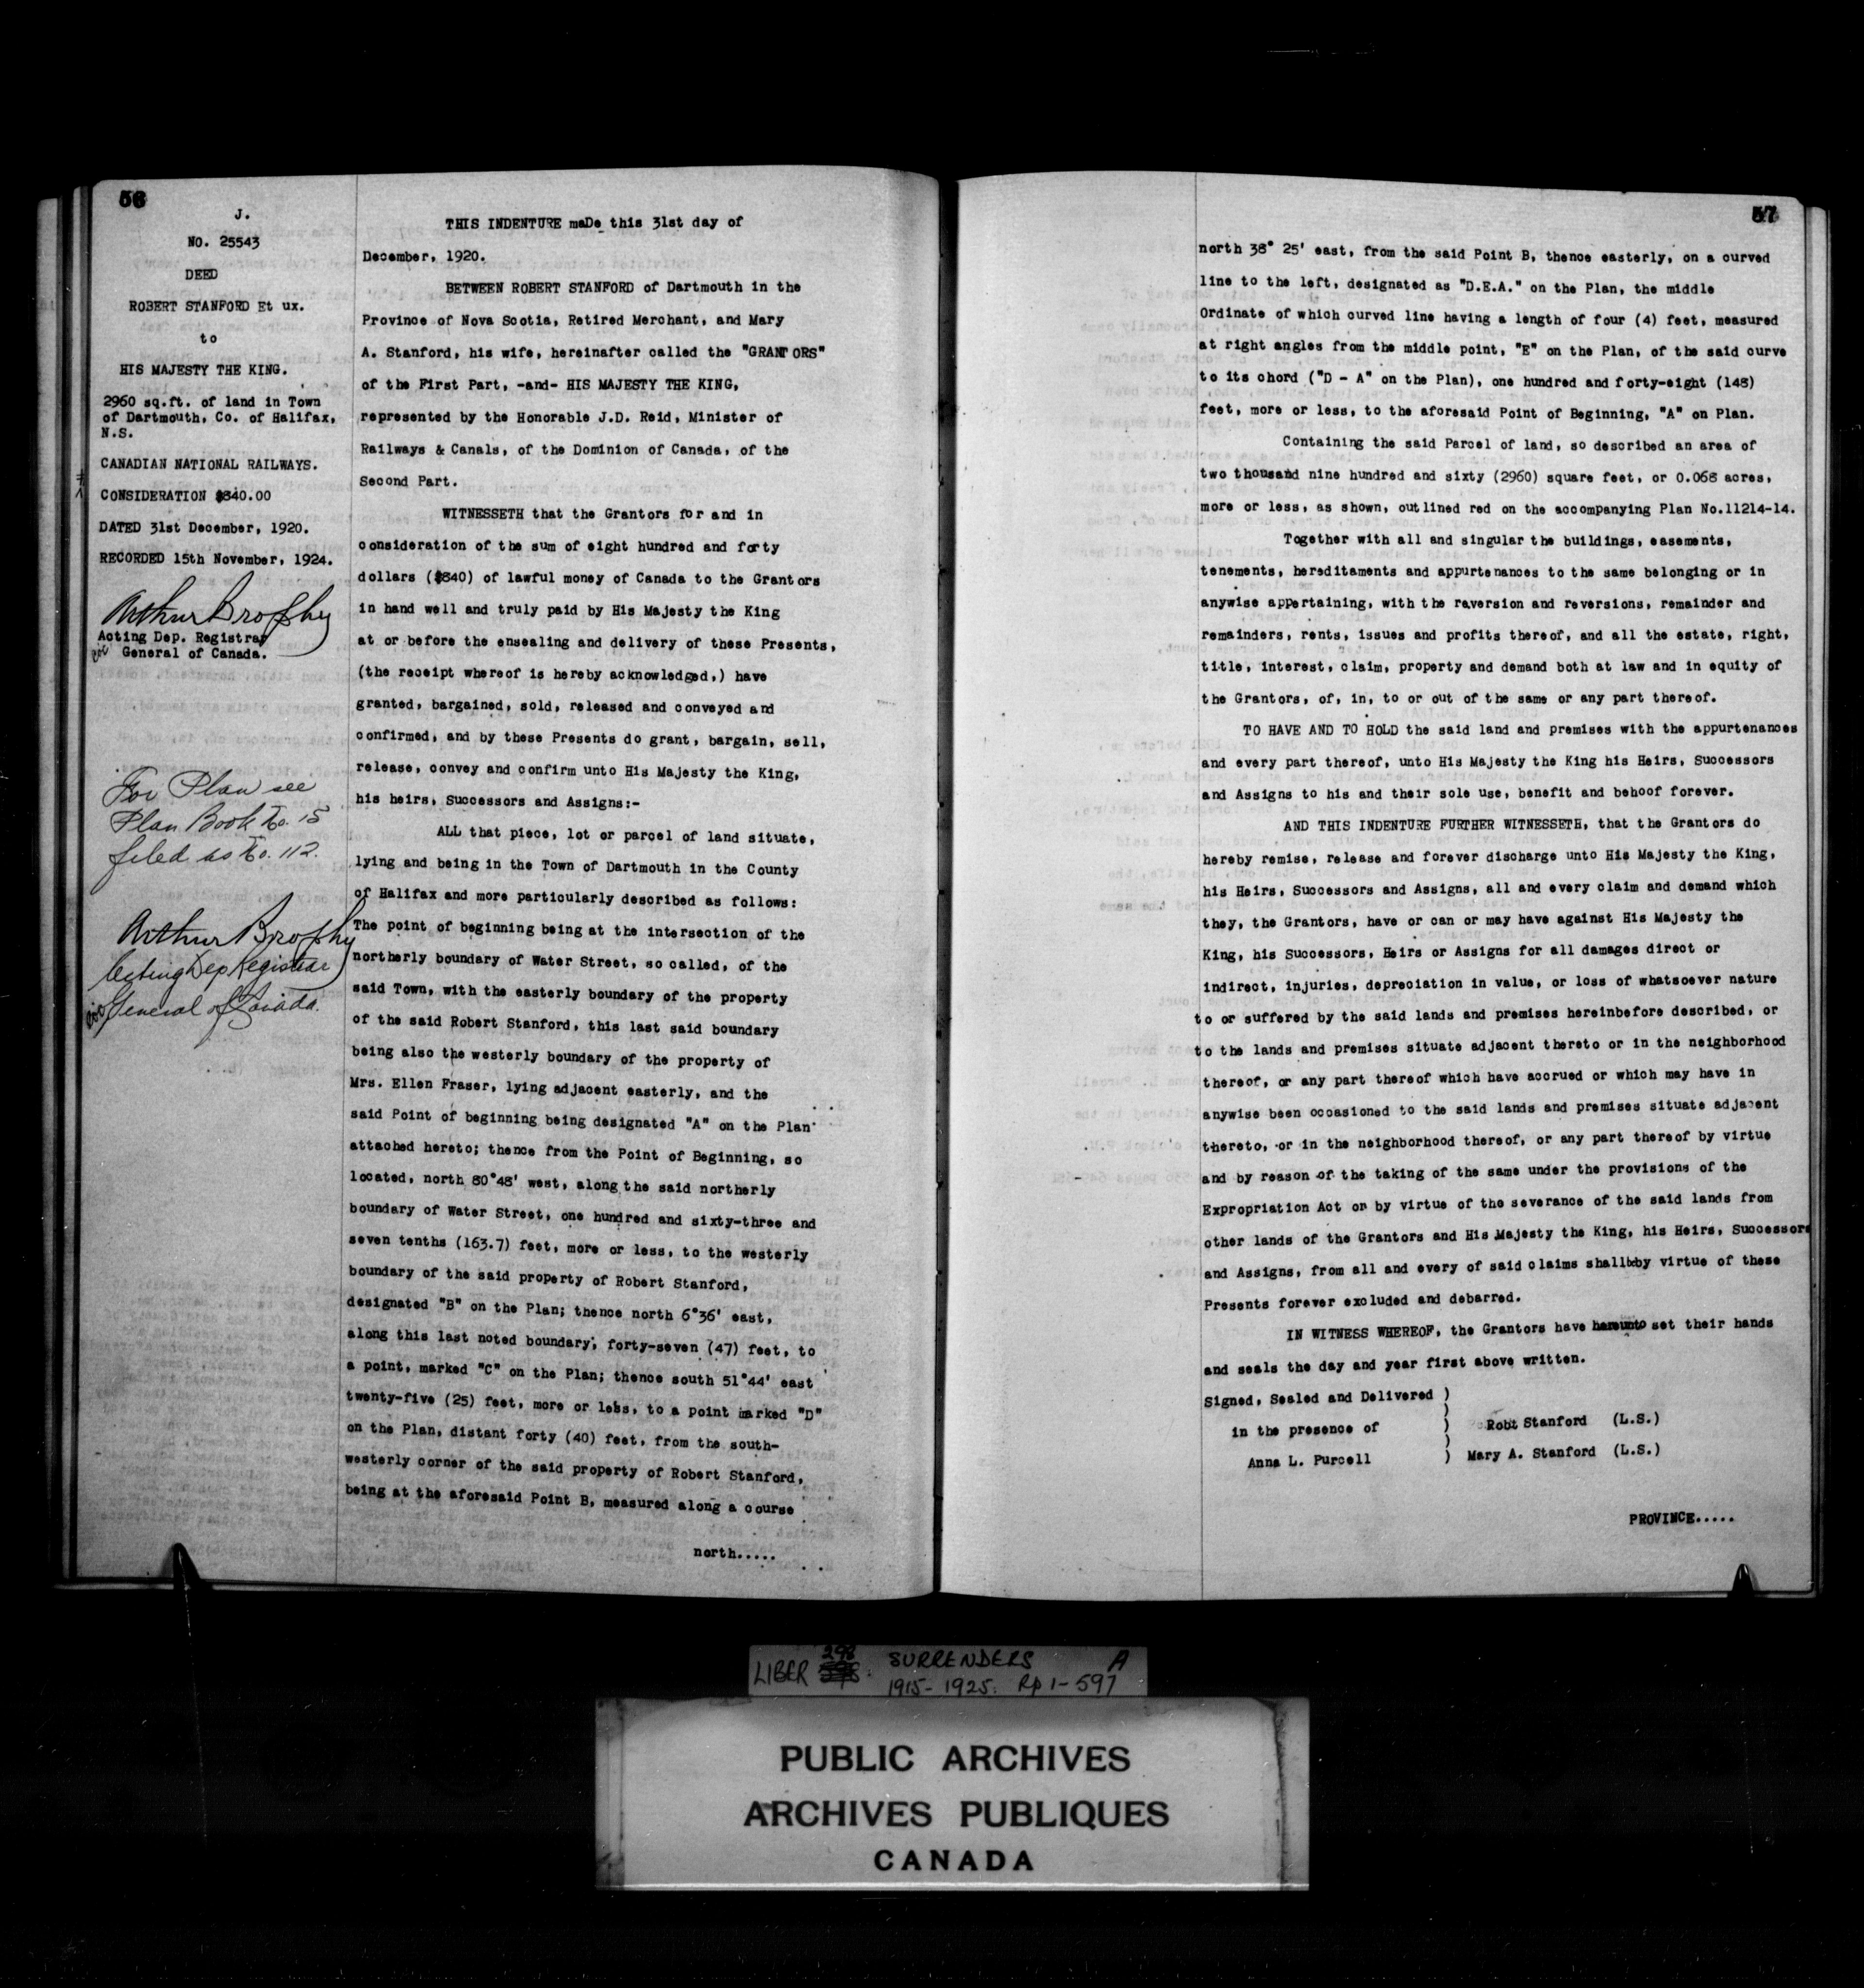 56
J.
NO. 25543
DEED
ROBERT STANFORD Et ux.
to
HIS MAJESTY THE KING.
2960 sq.ft. of land in Town
of Dartmouth, Co. of Halifax,
N.S.
CANADIAN NATIONAL RAILWAYS.
CONSIDERATION $840.00
DATED 31st December, 1920.
RECORDED 15th November, 1924.
Arthur Brophy
Acting Dep. Registrar
General of Canada.
For Plan see
Plan Book No. 15
filed as No. 112.
Arthur Brophy
Acting Dep Registrar
General of Canada.
THIS INDENTURE maDe this 31st day of
December, 1920.
BETWEEN ROBERT STANFORD of Dartmouth in the
Province of Nova Scotia, Retired Merchant, and Mary
A. Stanford, his wife, hereinafter called the "GRANTORS"
of the First Part, -and- HIS MAJESTY THE KING,
represented by the Honorable J.D. Reid, Minister of
Railways & Canals, of the Dominion of Canada, of the
Second Part.
WITNESSETH that the Grantors for and in
consideration of the sum of eight hundred and forty
dollars ($840) of lawful money of Canada to the Grantors
in hand well and truly paid by His Majesty the King
at or before the ensealing and delivery of these Presents,
(the receipt whereof is hereby acknowledged,) have
granted, bargained, sold, released and conveyed and
confirmed, and by these Presents do grant, bargain, sell,
release, convey and confirm unto His Majesty the King,
his heirs, Successors and Assigns:-
ALL that piece, lot or parcel of land situate,
lying and being in the Town of Dartmouth in the County
of Halifax and more particularly described as follows:
The point of beginning being at the intersection of the
northerly boundary of Water Street, so called, of the
said Town, with the easterly boundary of the property
of the said Robert Stanford, this last said boundary
being also the westerly boundary of the property of
Mrs. Ellen Fraser, lying adjacent easterly, and the
said Point of beginning being designated "A" on the Plan
attached hereto; thence from the Point of Beginning, so
located, north 80°48' west, along the said northerly
boundary of Water Street, one hundred and sixty-three and
seven tenths (163.7) feet, more or less, to the westerly
boundary of the said property of Robert Stanford,
designated "B" on the Plan; thence north 6°36' east,
along this last noted boundary, forty-seven (47) feet, to
a point, marked "C" on the Plan; thence south 51°44' east
twenty-five (25) feet, more or less, to a point marked "D"
on the Plan, distant forty (40) feet, from the south-
westerly corner of the said property of Robert Stanford,
being at the aforesaid Point B, measured along a course
north.....
57
north 38° 25' east, from the said Point B, thence easterly, on a curved
line to the left, designated as "D.E.A." on the Plan, the middle
Ordinate of which curved line having a length of four (4) feet, measured
at right angles from the middle point, "E" on the Plan, of the said curve
to its chord ("D - A" on the Plan), one hundred and forty-eight (148)
feet, more or less, to the aforesaid Point of Beginning, "A" on Plan.
Containing the said Parcel of land, so described an area of
two thousand nine hundred and sixty (2960) square feet, or 0.068 acres,
more or less, as shown, outlined red on the accompanying Plan No.11214-14.
Together with all and singular the buildings, easements,
tenements, hereditaments and appurtenances to the same belonging or in
anywise appertaining, with the reversion and reversions, remainder and
remainders, rents, issues and profits thereof, and all the estate, right,
title, interest, claim, property and demand both at law and in equity of
the Grantors, of, in, to or out of the same or any part thereof.
TO HAVE AND TO HOLD the said land and premises with the appurtenances
and every part thereof, unto His Majesty the King his Heirs, Successors
and Assigns to his and their sole use, benefit and behoof forever.
AND THIS INDENTURE FURTHER WITNESSETH, that the Grantors do
hereby remise, release and forever discharge unto His Majesty the King,
his Heirs, Successors and Assigns, all and every claim and demand which
they, the Grantors, have or can or may have against His Majesty the
King, his Successors, Heirs or Assigns for all damages direct or
indirect, injuries, depreciation in value, or loss of whatsoever nature
to or suffered by the said lands and premises hereinbefore described, or
to the lands and premises situate adjacent thereto or in the neighborhood
thereof, or any part thereof which have accrued or which may have in
anywise been occasioned to the said lands and premises situate adjacent
thereto, or in the neighborhood thereof, or any part thereof by virtue
and by reason of the taking of the same under the provisions of the
Expropriation Act or by virtue of the severance of the said lands from
other lands of the Grantors and His Majesty the King, his Heirs, Successors
and Assigns, from all and every of said claims shall by virtue of these
Presents forever excluded and debarred.
IN WITNESS WHEREOF, the Grantors have hereunto set their hands
and seals the day and year first above written.
Signed, Sealed and Delivered )
in the presence of ) Robt Stanford (L.S.)
Anna L. Purcell ) Mary A. Stanford (L.S.)
PROVINCE.....
LIBER 298 SURRENDERS A
1915-1925. Rp 1-597
PUBLIC ARCHIVES
ARCHIVES PUBLIQUES
CANADA